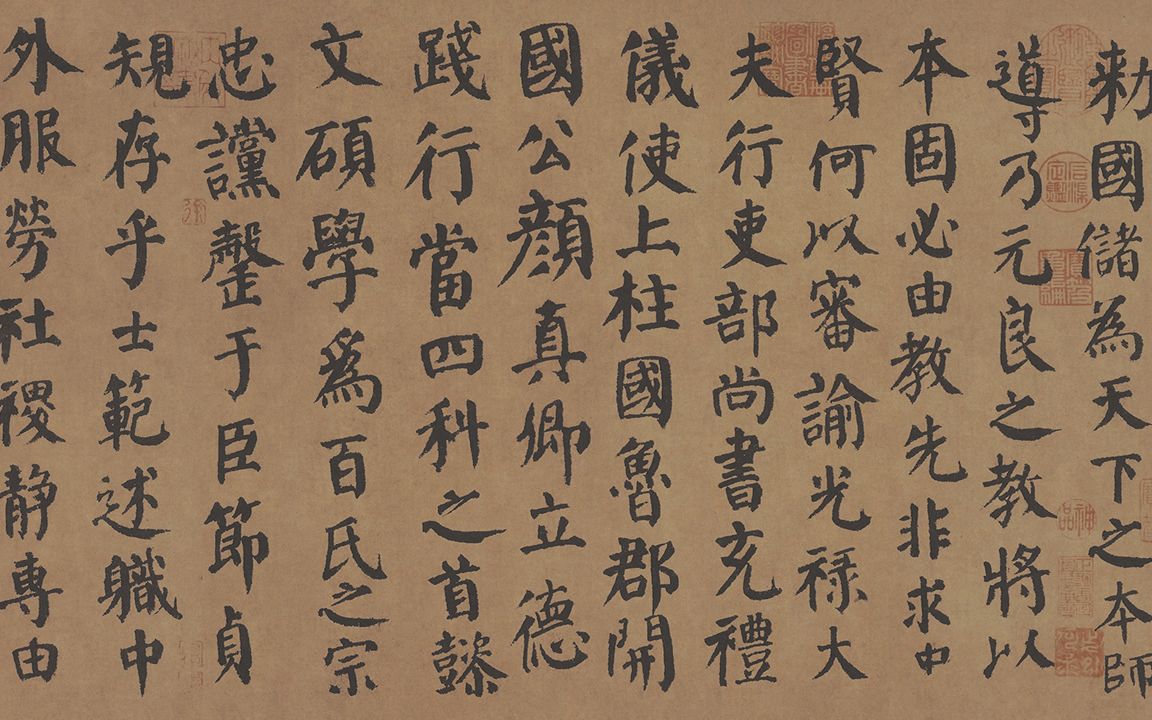 勅國儲為天下之本師
導乃元良之教將以
本固必由教先非求中
賢何以審諭光祿大
夫行吏部尚書充禮
儀使上柱國魯郡開
國公顏真卿立德
踐行當四科之首懿
文碩學爲百氏之宗
忠讜罄于臣節貞
規存乎士範述職中
外服勞社稷静專由